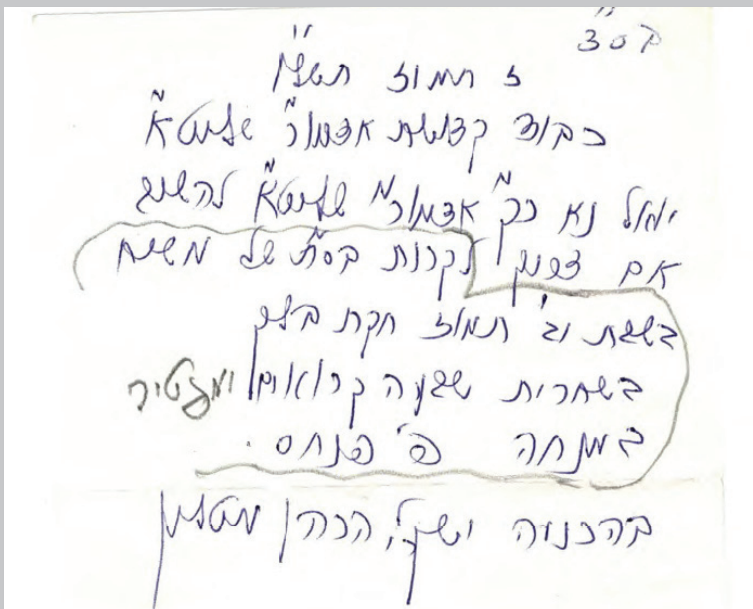 בס"ד
ז תמוז
כבוד קדושת אדמו"ר שליט"א
יואיל נא כ"ק אדמו"ר שליט"א להשיב
אם צריך לקרות בס"ת של משיח
בשבת יב' תמוז חקת בלק
בשחרית שבעה קרואים ומפטיר
במנחה פ' פנחס.
בהכנעה הכהן